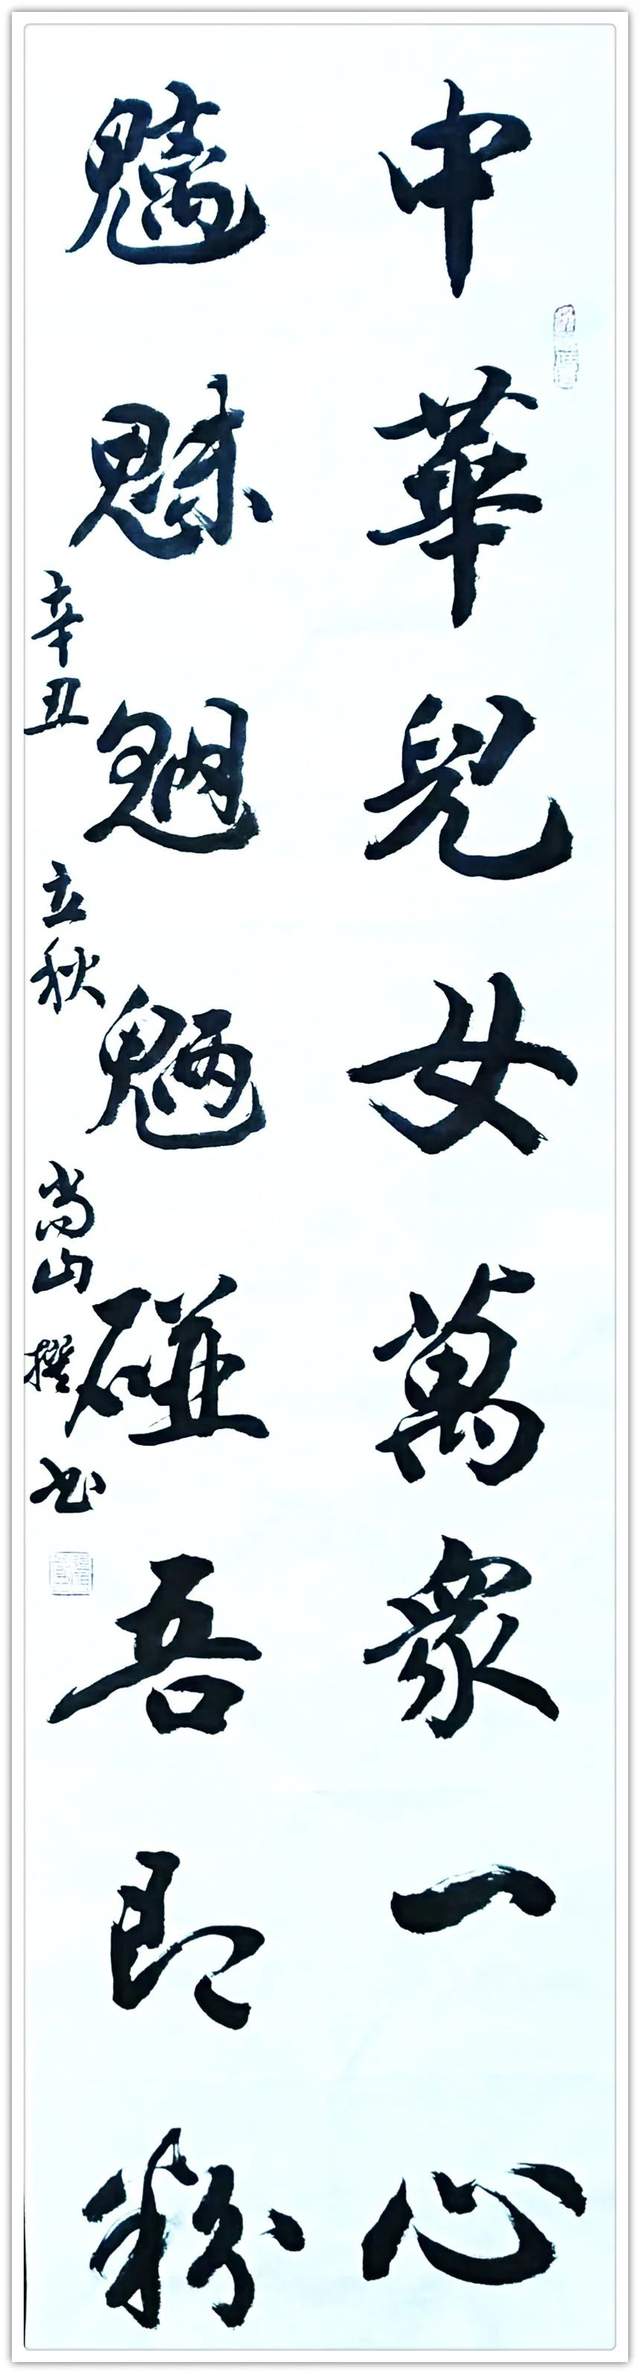 中華兒女萬衆一心
魑魅魍魎碰吾即粉
辛丑立秋嵩山撰书